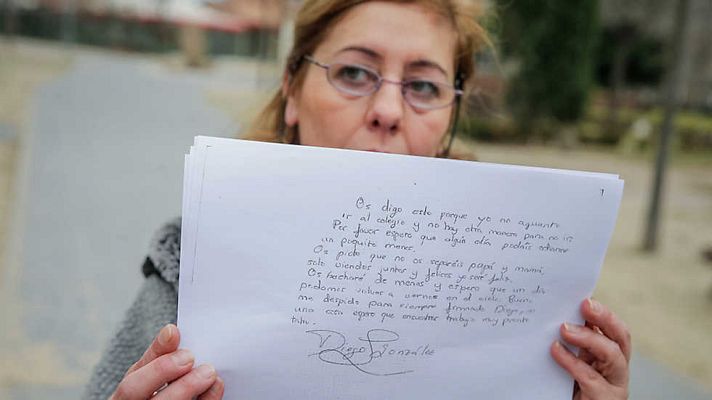 Os digo esto porque yo no aguanto
ir al colegio y no hay otra manera para no ir.
Por favor espero que algún día podáis odiarme
un poquito menos.
Os pido que no os separéis papá y mamá,
solo viendoos juntos y felices yo seré feliz.
Os hecharé de menos y espero que un día
podamos volver a vernos en el cielo. Bueno
me despido para siempre firmado Diego, a
una cosa espero que encuentres trabajo muy pronto
tata.
Diego González